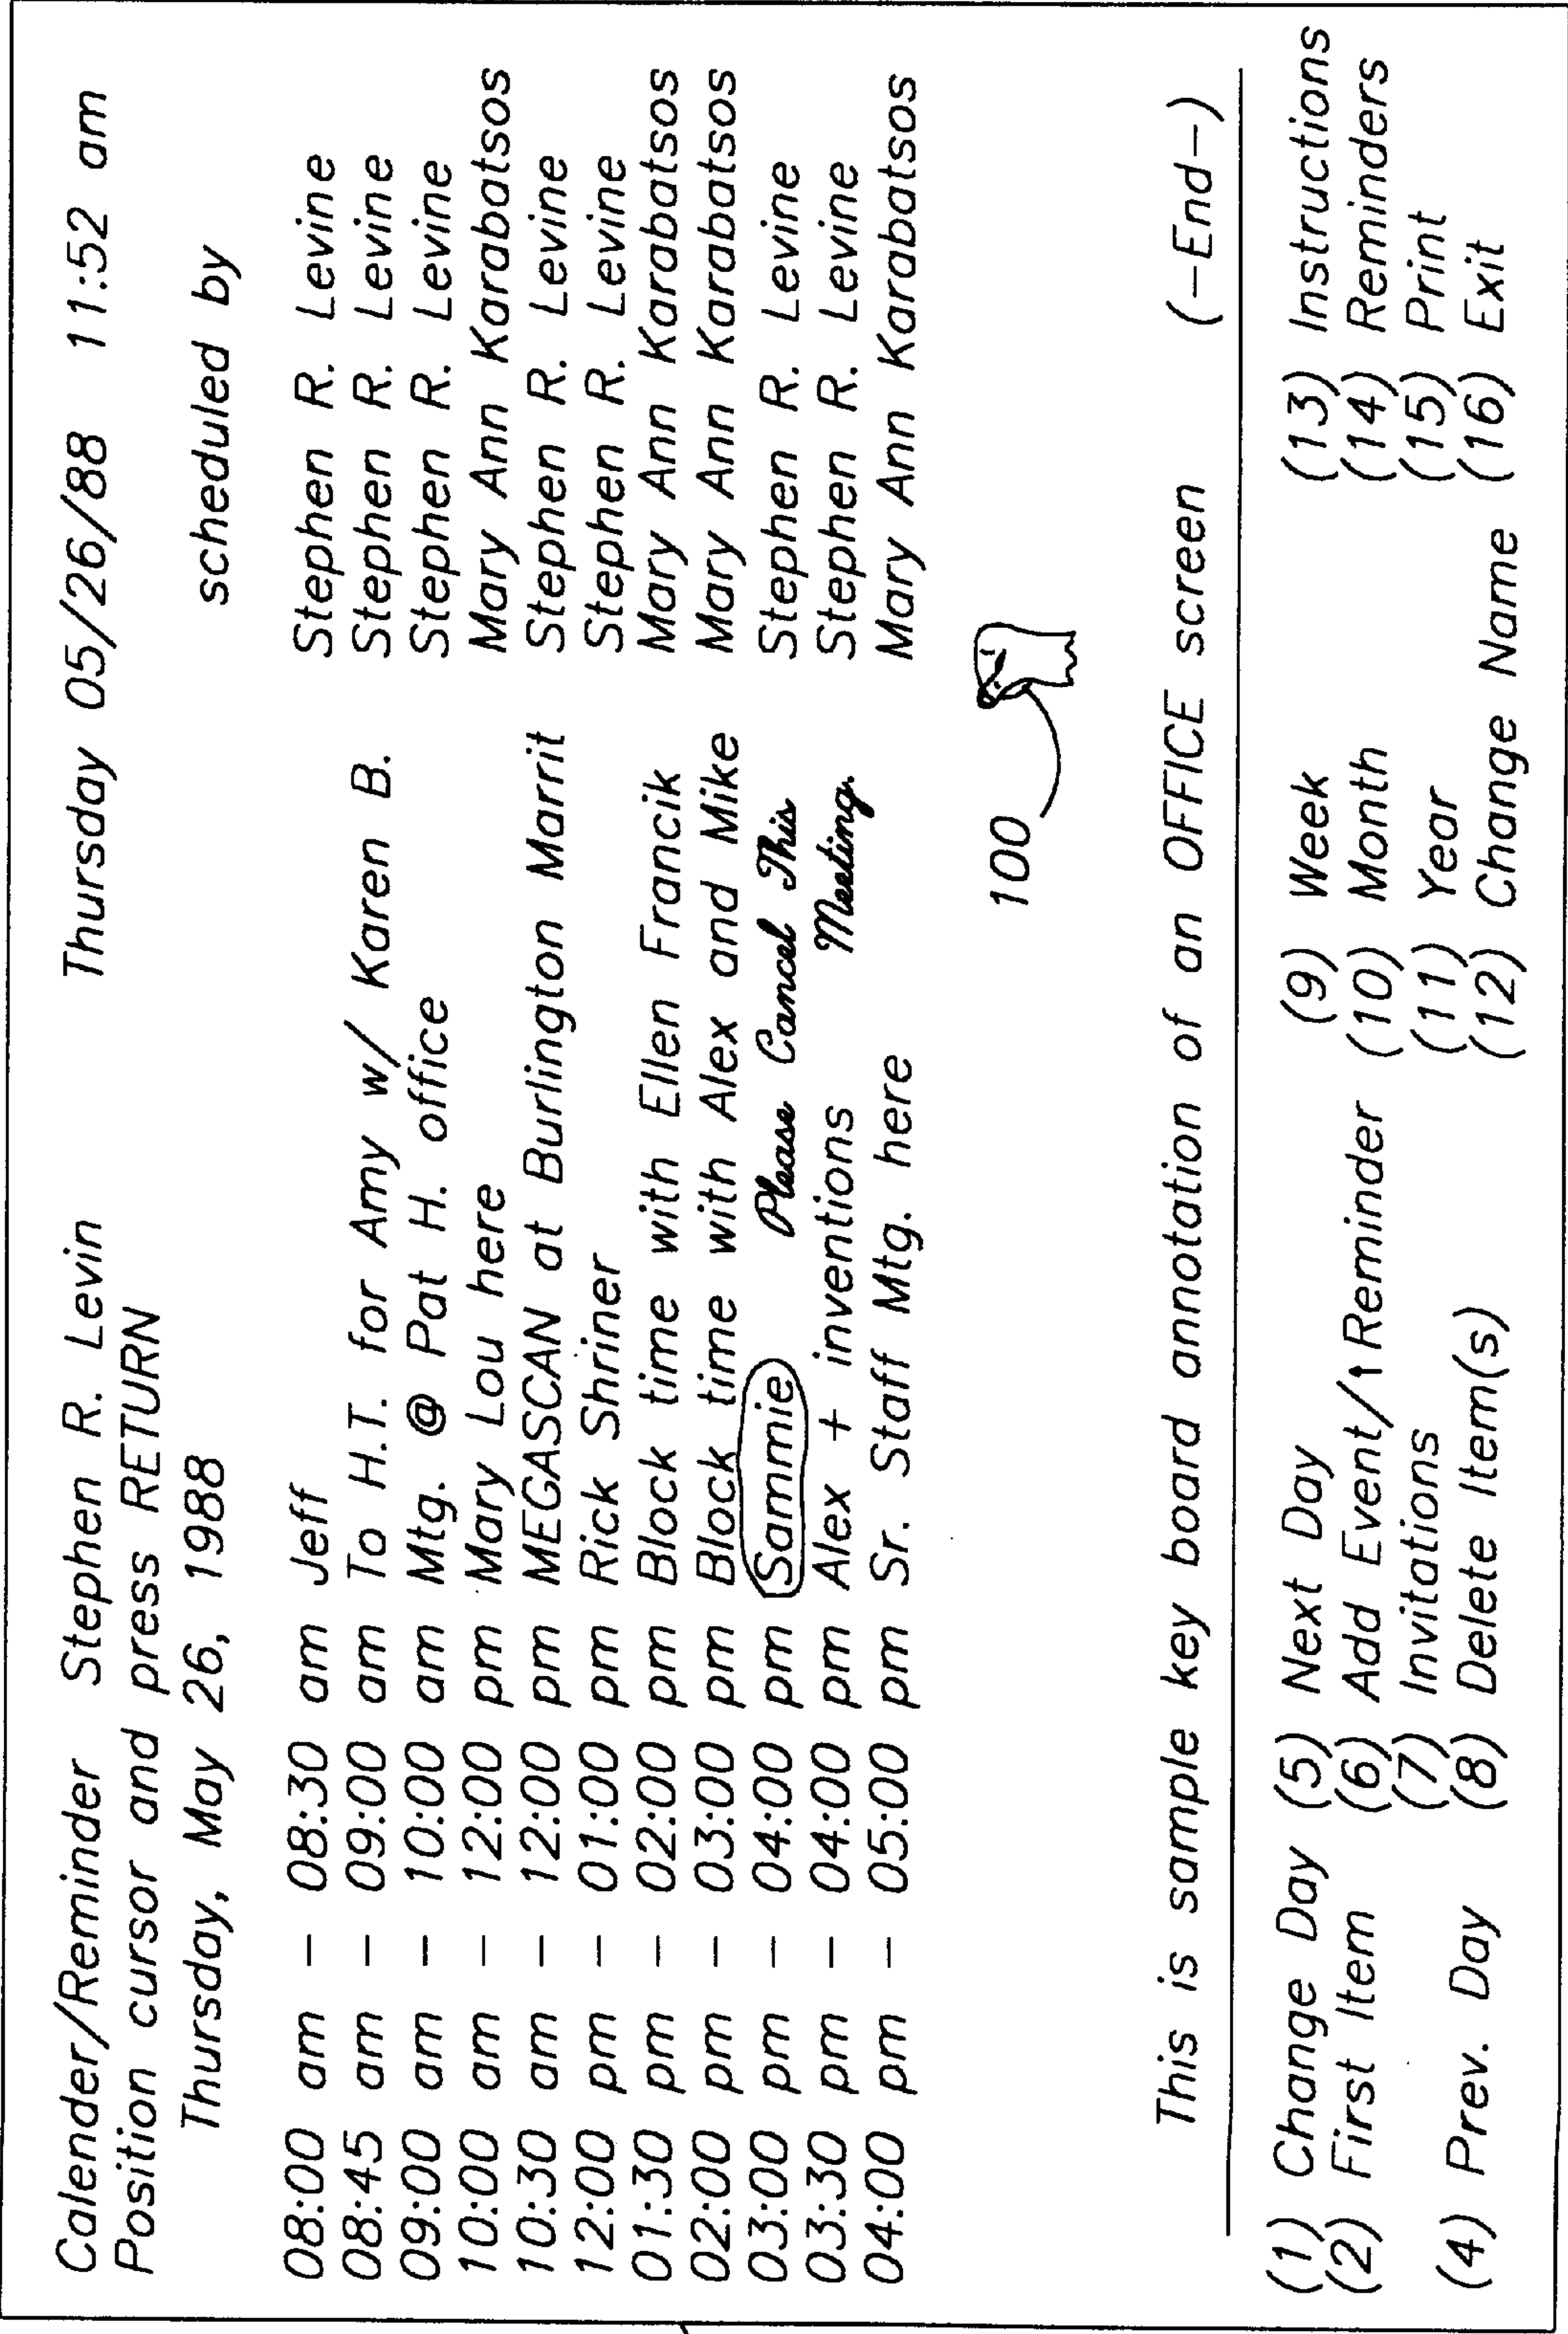 Calender/Reminder Stephen R. Levin Thursday 05/26/88 11:52 am
Position cursor and press RETURN
Thursday, May 26, 1988 scheduled by
08:00 am - 08:30 am Jeff Stephen R. Levine
08:45 am - 09:00 am To H.T. for Amy w/ Karen B. Stephen R. Levine
09:00 am - 10:00 am Mtg. @ Pat H. office Stephen R. Levine
10:00 am - 12:00 pm Mary Lou here Mary Ann Karabatsos
10:30 am - 12:00 pm MEGASCAN at Burlington Marrit Stephen R. Levine
12:00 pm - 01:00 pm Rick Shriner Stephen R. Levine
01:30 pm - 02:00 pm Block time with Ellen Francik Mary Ann Karabatsos
02:00 pm - 03:00 pm Block time with Alex and Mike Mary Ann Karabatsos
03:00 pm - 04:00 pm Sammie Please Cancel This Stephen R. Levine
03:30 pm - 04:00 pm Alex + inventions Meeting. Stephen R. Levine
04:00 pm - 05:00 pm Sr. Staff Mtg. here Mary Ann Karabatsos
100
This is sample key board annotation of an OFFICE screen (-End-)
(1) Change Day (5) Next Day (9) Week (13) Instructions
(2) First Item (6) Add Event/↑Reminder (10) Month (14) Reminders
(7) Invitations (11) Year (15) Print
(4) Prev. Day (8) Delete Item(s) (12) Change Name (16) Exit